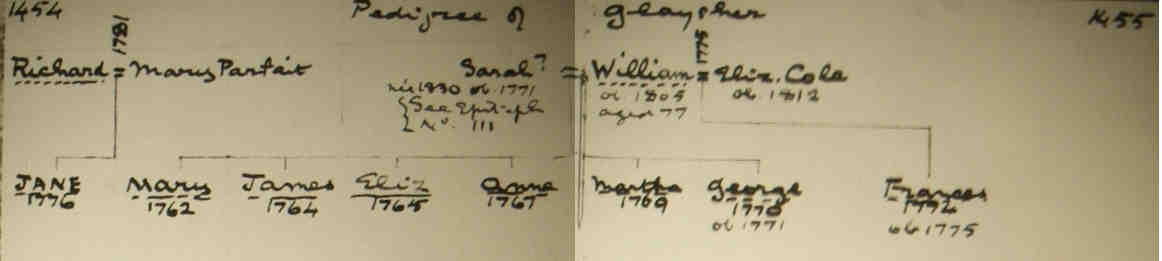 1454 Pedigree of Glaysher 1455
1781 1775
Richard = Mary Parfait Sarah ? = William = Eliz. Cole
nic 1730 ob. 1771 ob. 1805 ob. 1812
{See Epitaph aged 77
No. 111
JANE Mary James Eliz Anne Martha George Frances
1776 1762 1764 1765 1767 1769 1770 1774
ob 1771 ob 1775